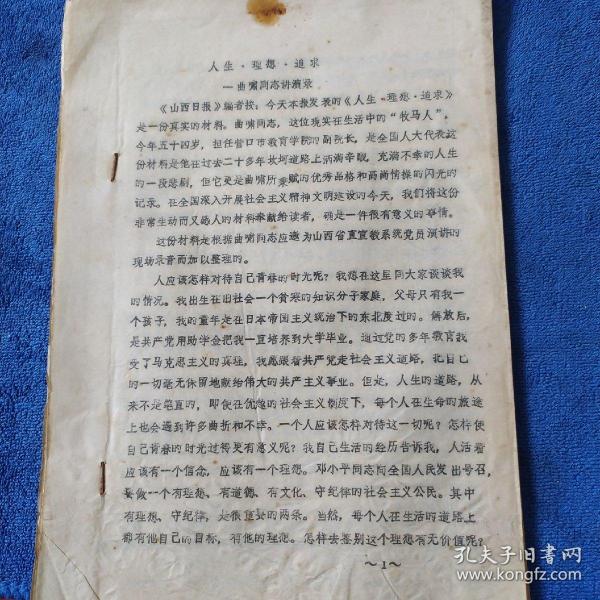 人生·理想·追求
—曲啸同志讲演录
《山西日报》编者按：今天本报发表的《人生·理想·追求》
是一份真实的材料。曲啸同志，这位现实在生活中的“牧马人”，
今年五十四岁，担任营口市教育学院的副院长，是全国人大代表这
份材料是他在过去二十多年坎坷道路上洒满辛酸，充满不幸的人生
的一段悲剧，但它更是曲啸所秉赋的优秀品格和高尚情操的闪光的
记录。在全国深入开展社会主义精神文明建设的今天，我们将这份
非常生动而又感人的材料奉献给读者，确是一件很有意义的事情。
这份材料是根据曲啸同志应邀为山西省直宣教系统党员演讲的
现场录音而加以整理的。
人应该怎样对待自己青春的时光呢？我想在这里同大家谈谈我
的情况。我出生在旧社会一个贫寒的知识分子家庭，父母只有我一
个孩子，我的童年是在日本帝国主义统治下的东北度过的。解放后，
是共产党用助学金把我一直培养到大学毕业。通过党的多年教育我
受了马克思主义的真理，我愿跟着共产党走社会主义道路，把自己
的一切毫无保留地献给伟大的共产主义事业。但是，人生的道路，从
来不是笔直的，即使在优越的社会主义制度下，每个人在生命的旅途
上也会遇到许多曲折和不幸。一个人应该怎样对待这一切呢？怎样使
自己青春的时光过得更有意义呢？我自己生活的经历告诉我，人活着
应该有一个信念，应该有一个理想。邓小平同志向全国人民发出号召，
要做一个有理想、有道德、有文化、守纪律的社会主义公民。其中
有理想、守纪律，是很重要的两条。当然，每个人在生活的道路上
都有他自己的目标，有他的理想。怎样去鉴别这个理想有无价值呢？
～1～
孔夫子旧书网
www.kongfz.com